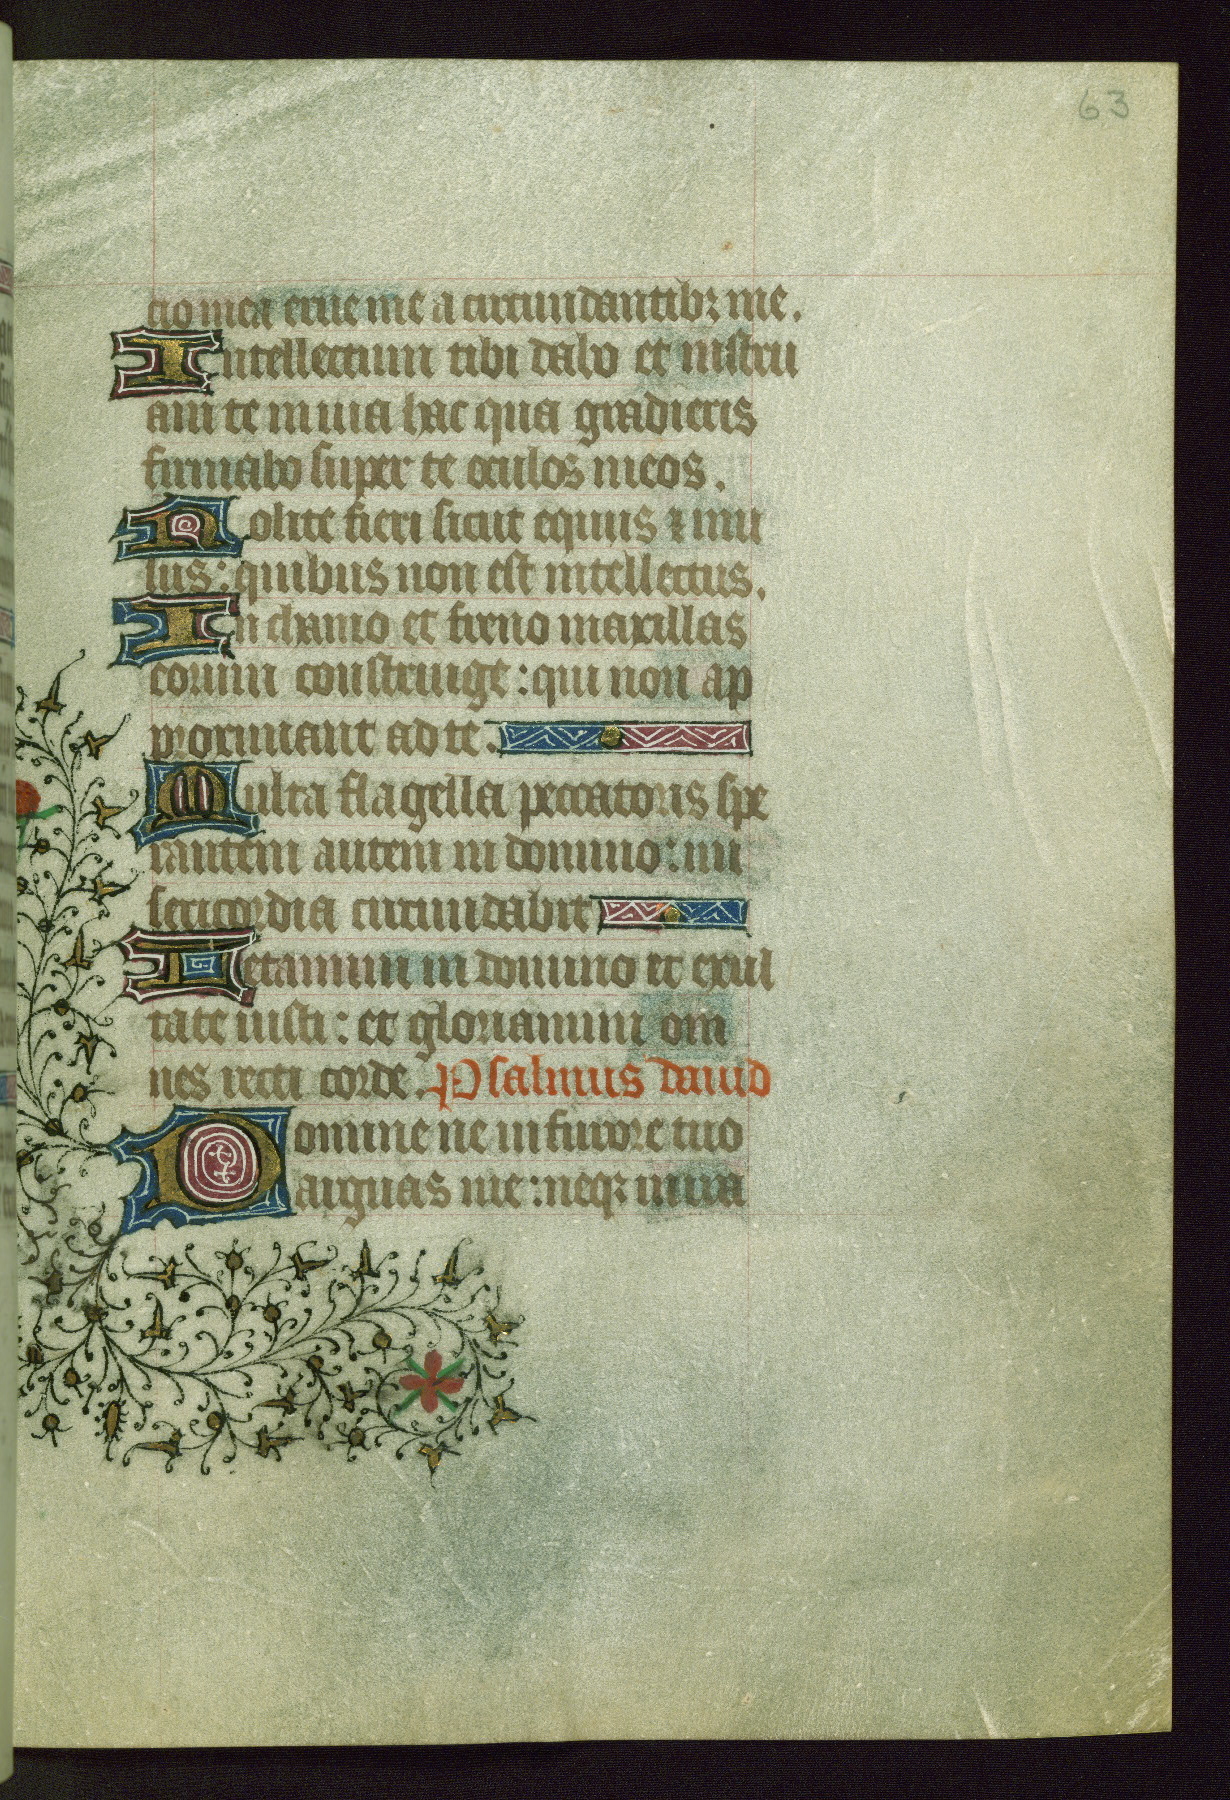 63
cio mea erue me a circundantibꝫ me.
Intellectum tibi dabo et instru
am te in uia hac qua gradieris
firmabo super te oculos meos.
Nolite fieri sicut equus ⁊ mu
lus: quibus non est intellectus.
In chamo et freno maxillas
eorum constringe: qui non ap
proximant ad te.
Multa flagella peccatoris spe
rantem autem in domino: mi
sericordia circundabit
Letamini in domino et exul
tate iusti: et gloriamini om
nes recti corde. Psalmus dauid
Domine ne in furore tuo
arguas me: neqꝫ in ira